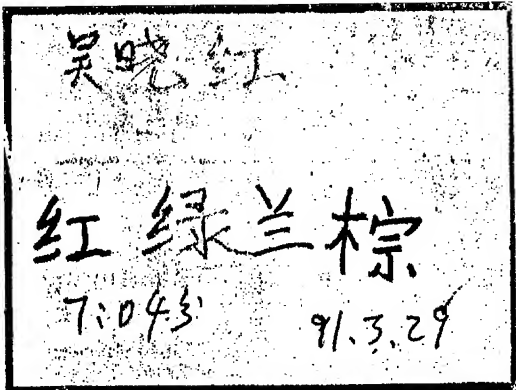 吴晓红
红绿兰棕
7:04分
91.3.29